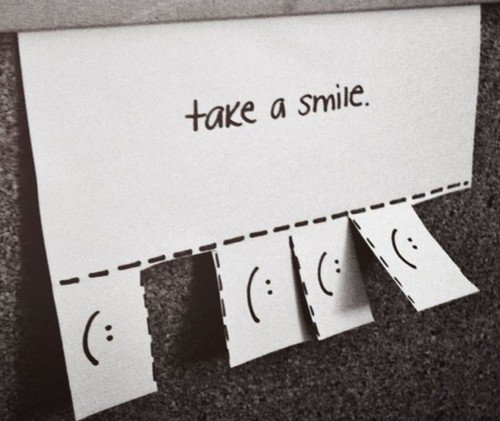 take a smile.
(: (: (: (: